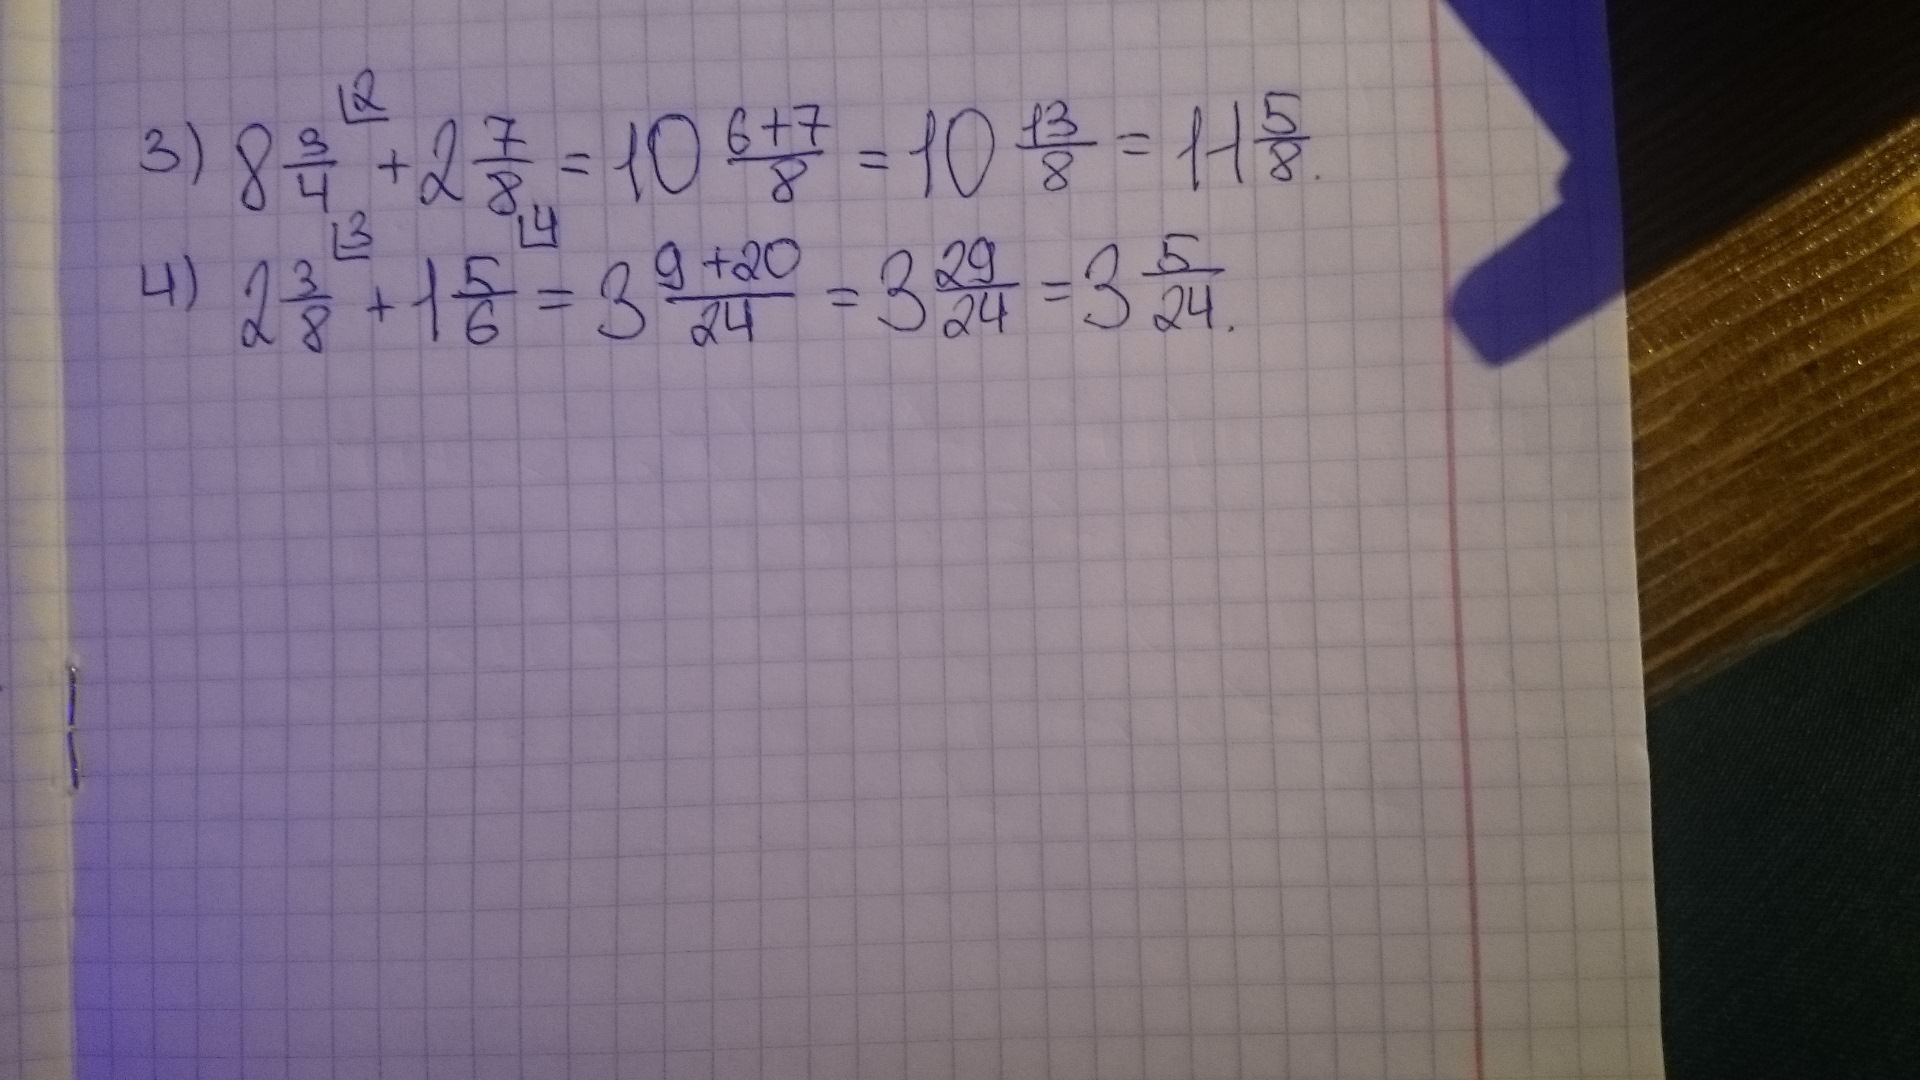 3) 8 3/4 ⌊2 + 2 7/8 = 10 (6+7)/8 = 10 13/8 = 11 5/8.
4) 2 3/8 ⌊3 + 1 5/6 ⌊4 = 3 (9+20)/24 = 3 29/24 = 3 5/24.